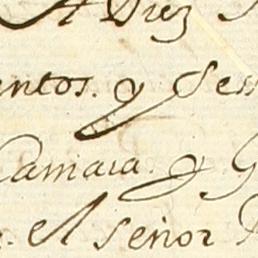 A Diez
entos. y Ses
Camara. y G
el señor